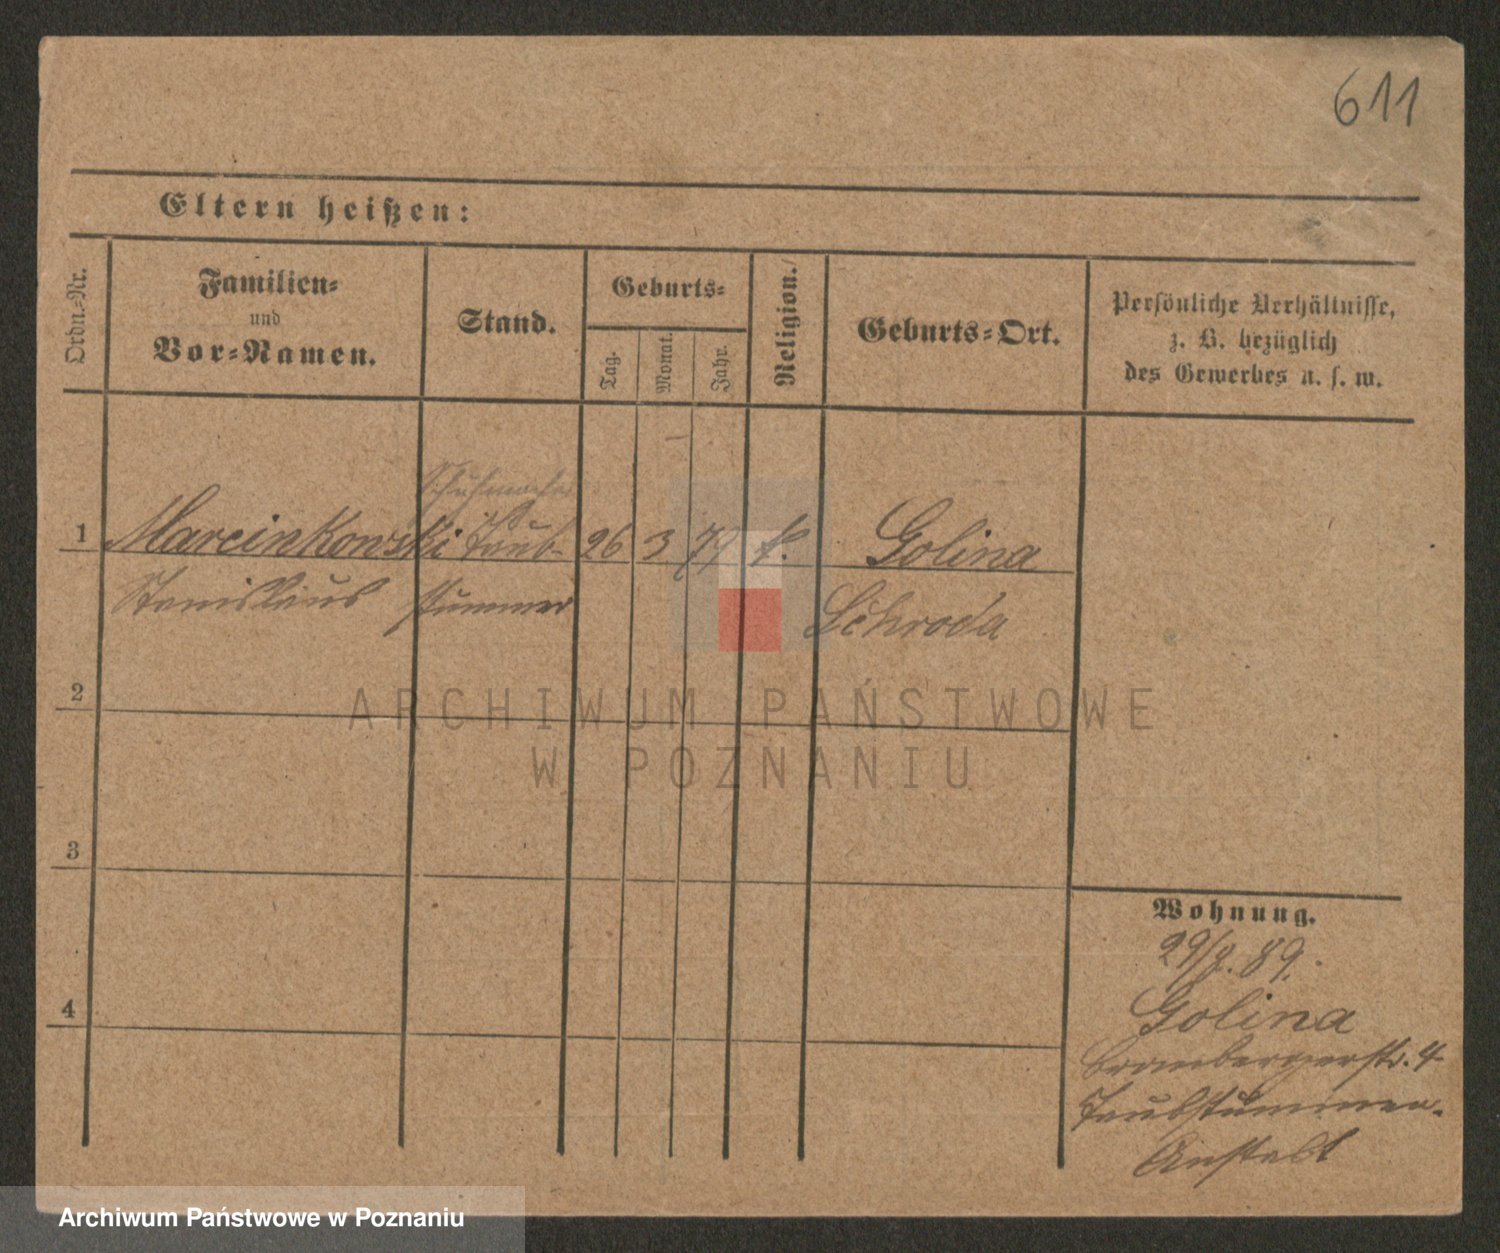 611
Eltern heißen:
Ordn.-Nr.
Familien-
und
Vor-Namen.
Stand.
Geburts-
Tag.
Monat.
Jahr.
Religion.
Geburts-Ort.
Persönliche Verhältnisse,
z. B. bezüglich
des Gewerbes u. s. w.
Schuhmacher
1 Marcinkowski Taub- 26 3 77 k. Golina
Stanislaus stummer Schroda
2
ARCHIWUM PAŃSTWOWE
W POZNANIU
3
4
Wohnung.
29/8. 89.
Golina
Brombergerstr. 4
Taubstummen-
Anstalt
Archiwum Państwowe w Poznaniu